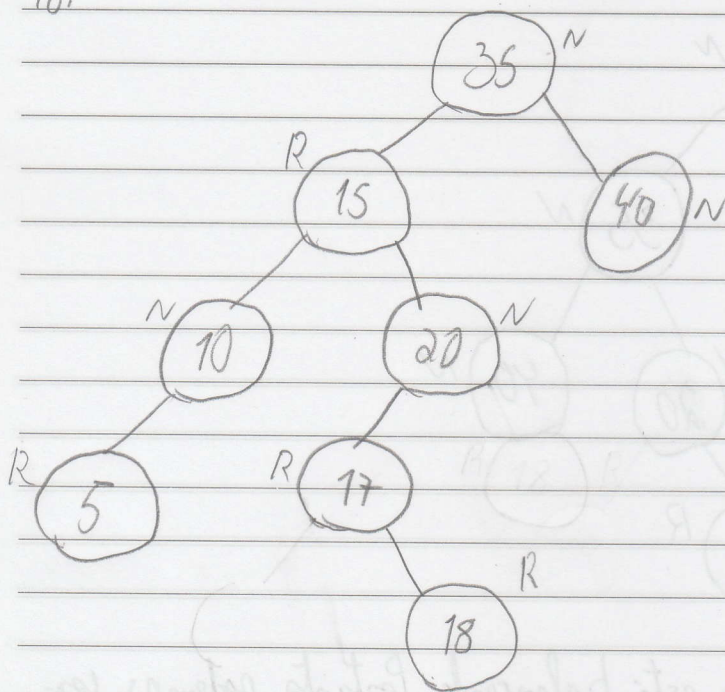 35 N
R
15
40 N
N
10
20
N
R
5
R
17
R
18